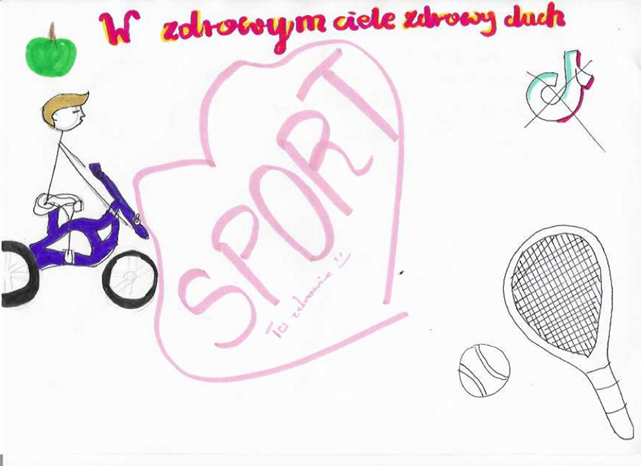 W zdrowym ciele zdrowy duch
SPORT
To zdrowie !!